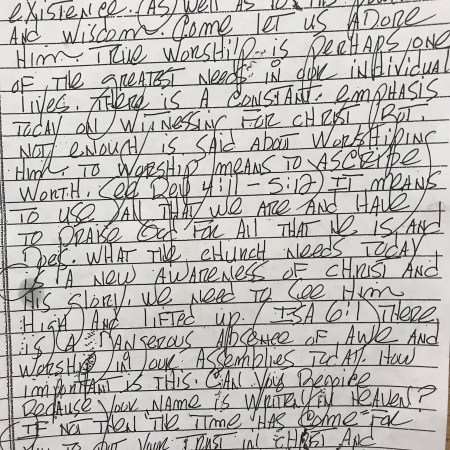 existence. (As) well as to His
And Wisdom. Come let us Adore
Him. True worship is perhaps one
of the greatest needs in our individual
lives. There is A constant emphasis
today on witnessing for Christ. But,
not enough is said about worshiping
Him. To worship means to ascribe
worth. See Rev 4:11 - 5:12) It means
to use (all that we are and have
to praise God for all that He is and
Does. What the church needs today
is (A new awareness of Christ and
His glory. We need to see Him
High And lifted up. (ISA 6:1) There
is (A dangerous absence of Awe and
worship in our Assemblies today. How
important is this. Can you Rejoice
Because your name is written in Heaven?
If no then the time has come for
you to put your trust in Christ And